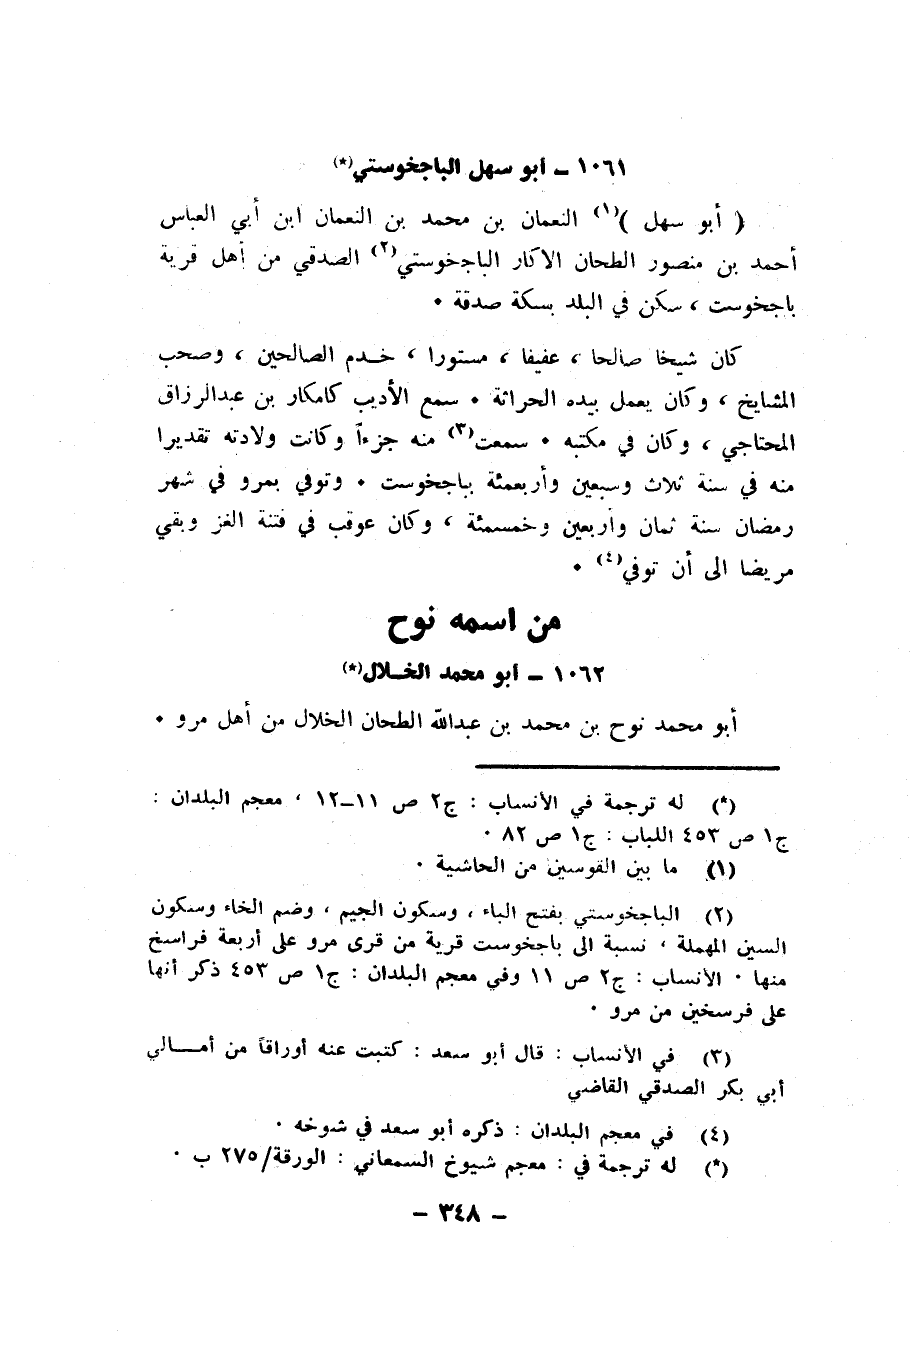 ١٠٦١ ــ ابو سهل الباجخوستي(*)
( أبو سهل )(١) النعمان بن محمد بن النعمان ابن أبي العباس
أحمد بن منصور الطحان الاكار الباجخوستي(٢) الصدقي من أهل قرية
باجخوست ، سكن في البلد بسكة صدقة ٠
كان شيخا صالحا ، عفيفا ، مستورا ، خـدم الصالحين ، وصحب
المشايخ ، وكان يعمل بيده الحراثة ٠ سمع الأديب كامكار بن عبدالرزاق
المحتاجي ، وكان في مكتبه ٠ سمعت(٣) منه جزءاً وكانت ولادته تقديرا
منه في سنة ثلاث وسبعين وأربعمئة بباجخوست ٠ وتوفي بمرو في شهر
رمضان سنة ثمان وأربعين وخمسمئة ، وكان عوقب في فتنة الغز وبقي
مريضا الى أن توفي(٤) ٠
من اسمه نوح
١٠٦٢ ــ ابو محمد الخـلال(*)
أبو محمد نوح بن محمد بن عبدالله الطحان الخلال من أهل مرو ٠
(*) له ترجمة في الأنساب : ج٢ ص ١١ــ١٢ ، معجم البلدان :
ج١ ص ٤٥٣ اللباب : ج١ ص ٨٢ ٠
(١) ما بين القوسين من الحاشية ٠
(٢) الباجخوستي بفتح الباء ، وسكون الجيم ، وضم الخاء وسكون
السين المهملة ، نسبة الى باجخوست قرية من قرى مرو على أربعة فراسخ
منها ٠ الأنساب : ج٢ ص ١١ وفي معجم البلدان : ج١ ص ٤٥٣ ذكر أنها
على فرسخين من مرو ٠
(٣) في الأنساب : قال أبو سعد : كتبت عنه أوراقاً من أمـــالي
أبي بكر الصدقي القاضي
(٤) في معجم البلدان : ذكره أبو سعد في شوخه ٠
(*) له ترجمة في : معجم شيوخ السمعاني : الورقة/٢٧٥ ب ٠
ــ ٣٤٨ ــ